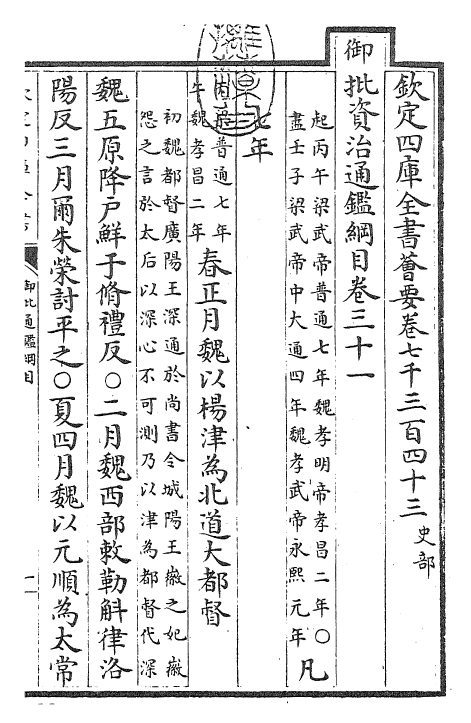 欽定四庫全書薈要卷七千三百四十三 史部
御批資治通鑑綱目卷三十一
起丙午梁武帝普通七年魏孝明帝孝昌二年○
盡壬子梁武帝中大通四年魏孝武帝永熙元年
凡
七年
普通七年
午魏孝昌二年
春正月魏以楊津為北道大都督
初魏都督廣陽王深通於尚書令城陽王徽之妃徽
怨之言於太后以深心不可測乃以津為都督代深
魏五原降戶鮮于脩禮反○二月魏西部敕勒斛律洛
陽反三月爾朱榮討平之○夏四月魏以元順為太常
御批通鑑綱目
一